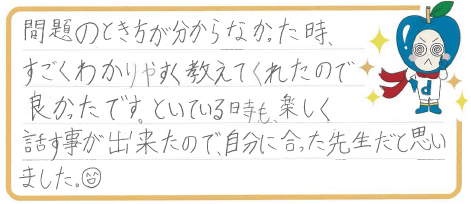 問題のとき方が分からなかった時、
すごくわかりやすく教えてくれたので
良かったです。といている時も、楽しく
話す事が出来たので、自分に合った先生だと思い
ました。
d